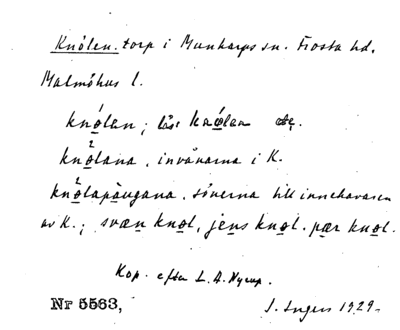 Knölen. torp i Munkarps sn. Frosta hd.
Malmöhus l.
knǿlan; läs: knǿlan
knølana, invånarna i K.
knølapǎugana, sönerna till innehavaren
av K.; svæn knøl, jens knøl, pær knøl.
Kop. efter L. A. Nyrup.
Nr 5563, J. Ingers 1929.